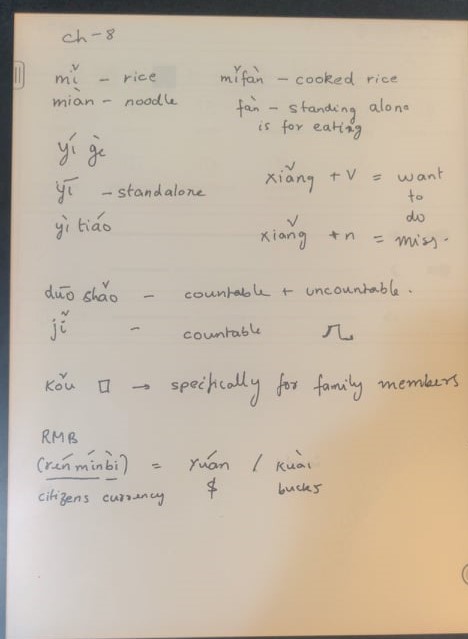 ch-8
mǐ - rice    mǐfàn - cooked rice
miàn - noodle    fàn - standing alone
is for eating
yí gè
yī - standalone    xiǎng + V = want
to
do
yì tiáo    xiǎng + n = miss.
duō shǎo - countable + uncountable.
jǐ - countable    几
kǒu 口 → specifically for family members
RMB
(rén mínbì) = yuán / kuài
citizens currency    $    bucks